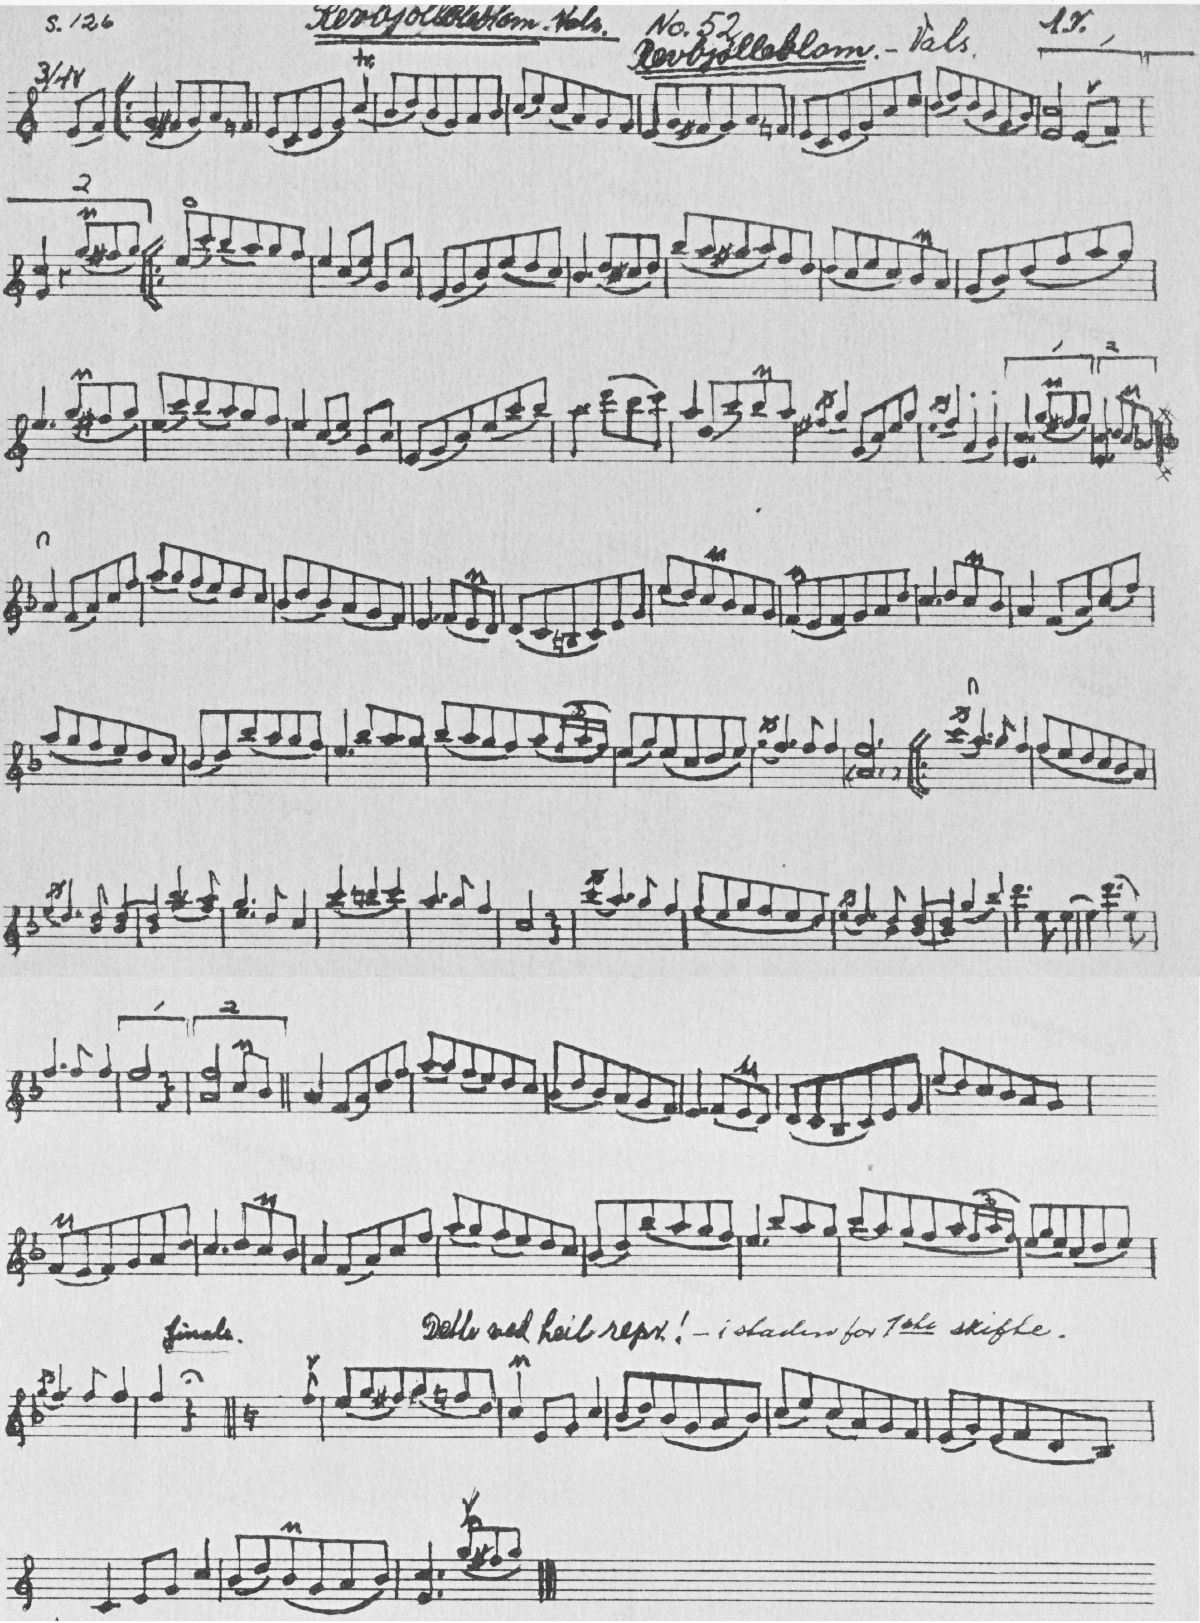 S. 126
Revbjølleblom. Vals. No. 52
Revbjølleblom. - Vals.
3/4
tr.
1
2
1 2
3
1 2
3
finale. Dette ved heile repr.! - i staden for 1ste skifte.